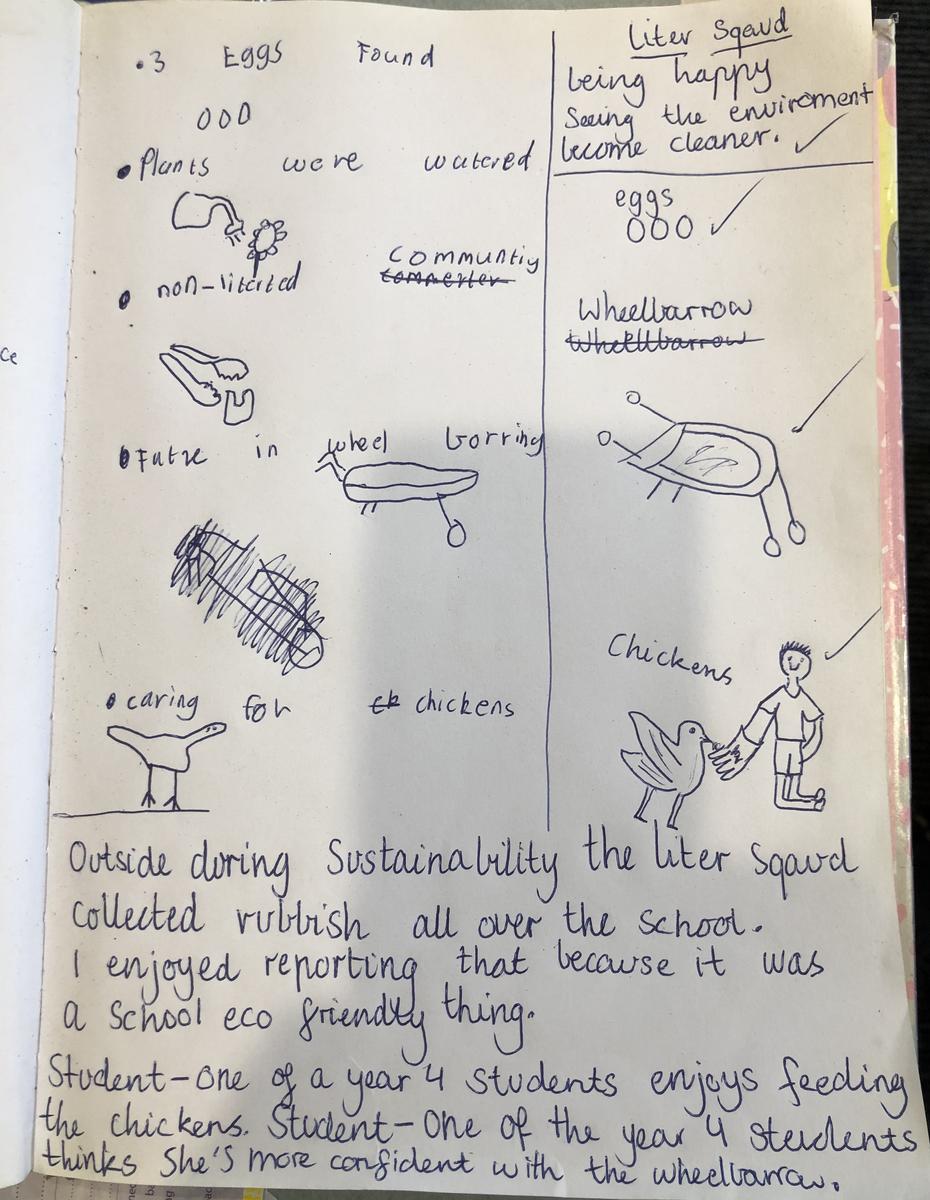 • 3 Eggs Found
• Plants were watered
Communtiy
• non-literted
wheel borring
in
• caring for chickens
Liter Sqaud
being happy
Seeing the enviroment
become cleaner.
eggs
Wheelbarrow
Chickens
Outside during Sustainability the liter Sqaud
collected rubbish all over the school.
I enjoyed reporting that because it was
a School eco friendly thing.
Student-One of a year 4 students enjoys feeding
the chickens. Student-One of the year 4 steudents
thinks She's more confident with the wheelbarrow.
ce